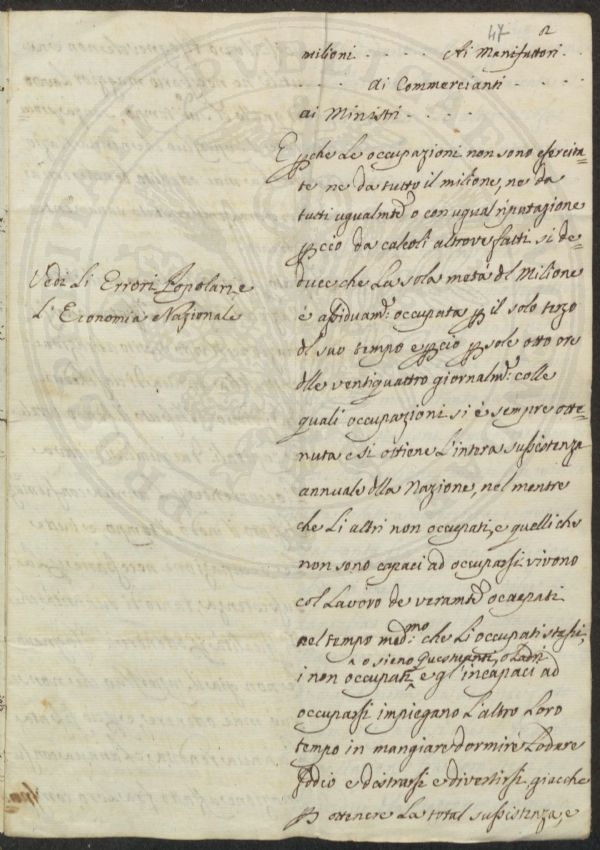 47 2
milioni . . . . . Ai Manifattori . .
. . . . ai Commercianti . . . .
ai Ministri . . . .
E pche Le occupazioni non sono esercita=
te ne da tutto il milione, ne da
tutti ugualmte o con ugual riputazione
pciò da calcoli altrove fatti si de=
duce che La sola metá dl Milione
é assiduamte: occupata p il solo terzo
dl suo tempo e pció p sole otto ore
dlle ventiquattro giornalmte: colle
quali occupazioni si é sempre otte=
nuta e si ottiene L'intera sussistenza
annuale dlla Nazione, nel mentre
che Li altri non occupati, e quelli che
non sono capaci ad occuparsi vivono
col Lavoro de veramte occupati
nel tempo medmo: che Li occupati stessi,
o sieno Questuanti, o Ladri
i non occupati e gl'incapaci ad
occuparsi impiegano L'altro Loro
tempo in mangiare dormire Lodare
Iddio e distrarsi e divertirsi, giacche
p ottenere La total sussistenza, e
Vedi Li Errori Popolari, e
L'Economia Nazionale